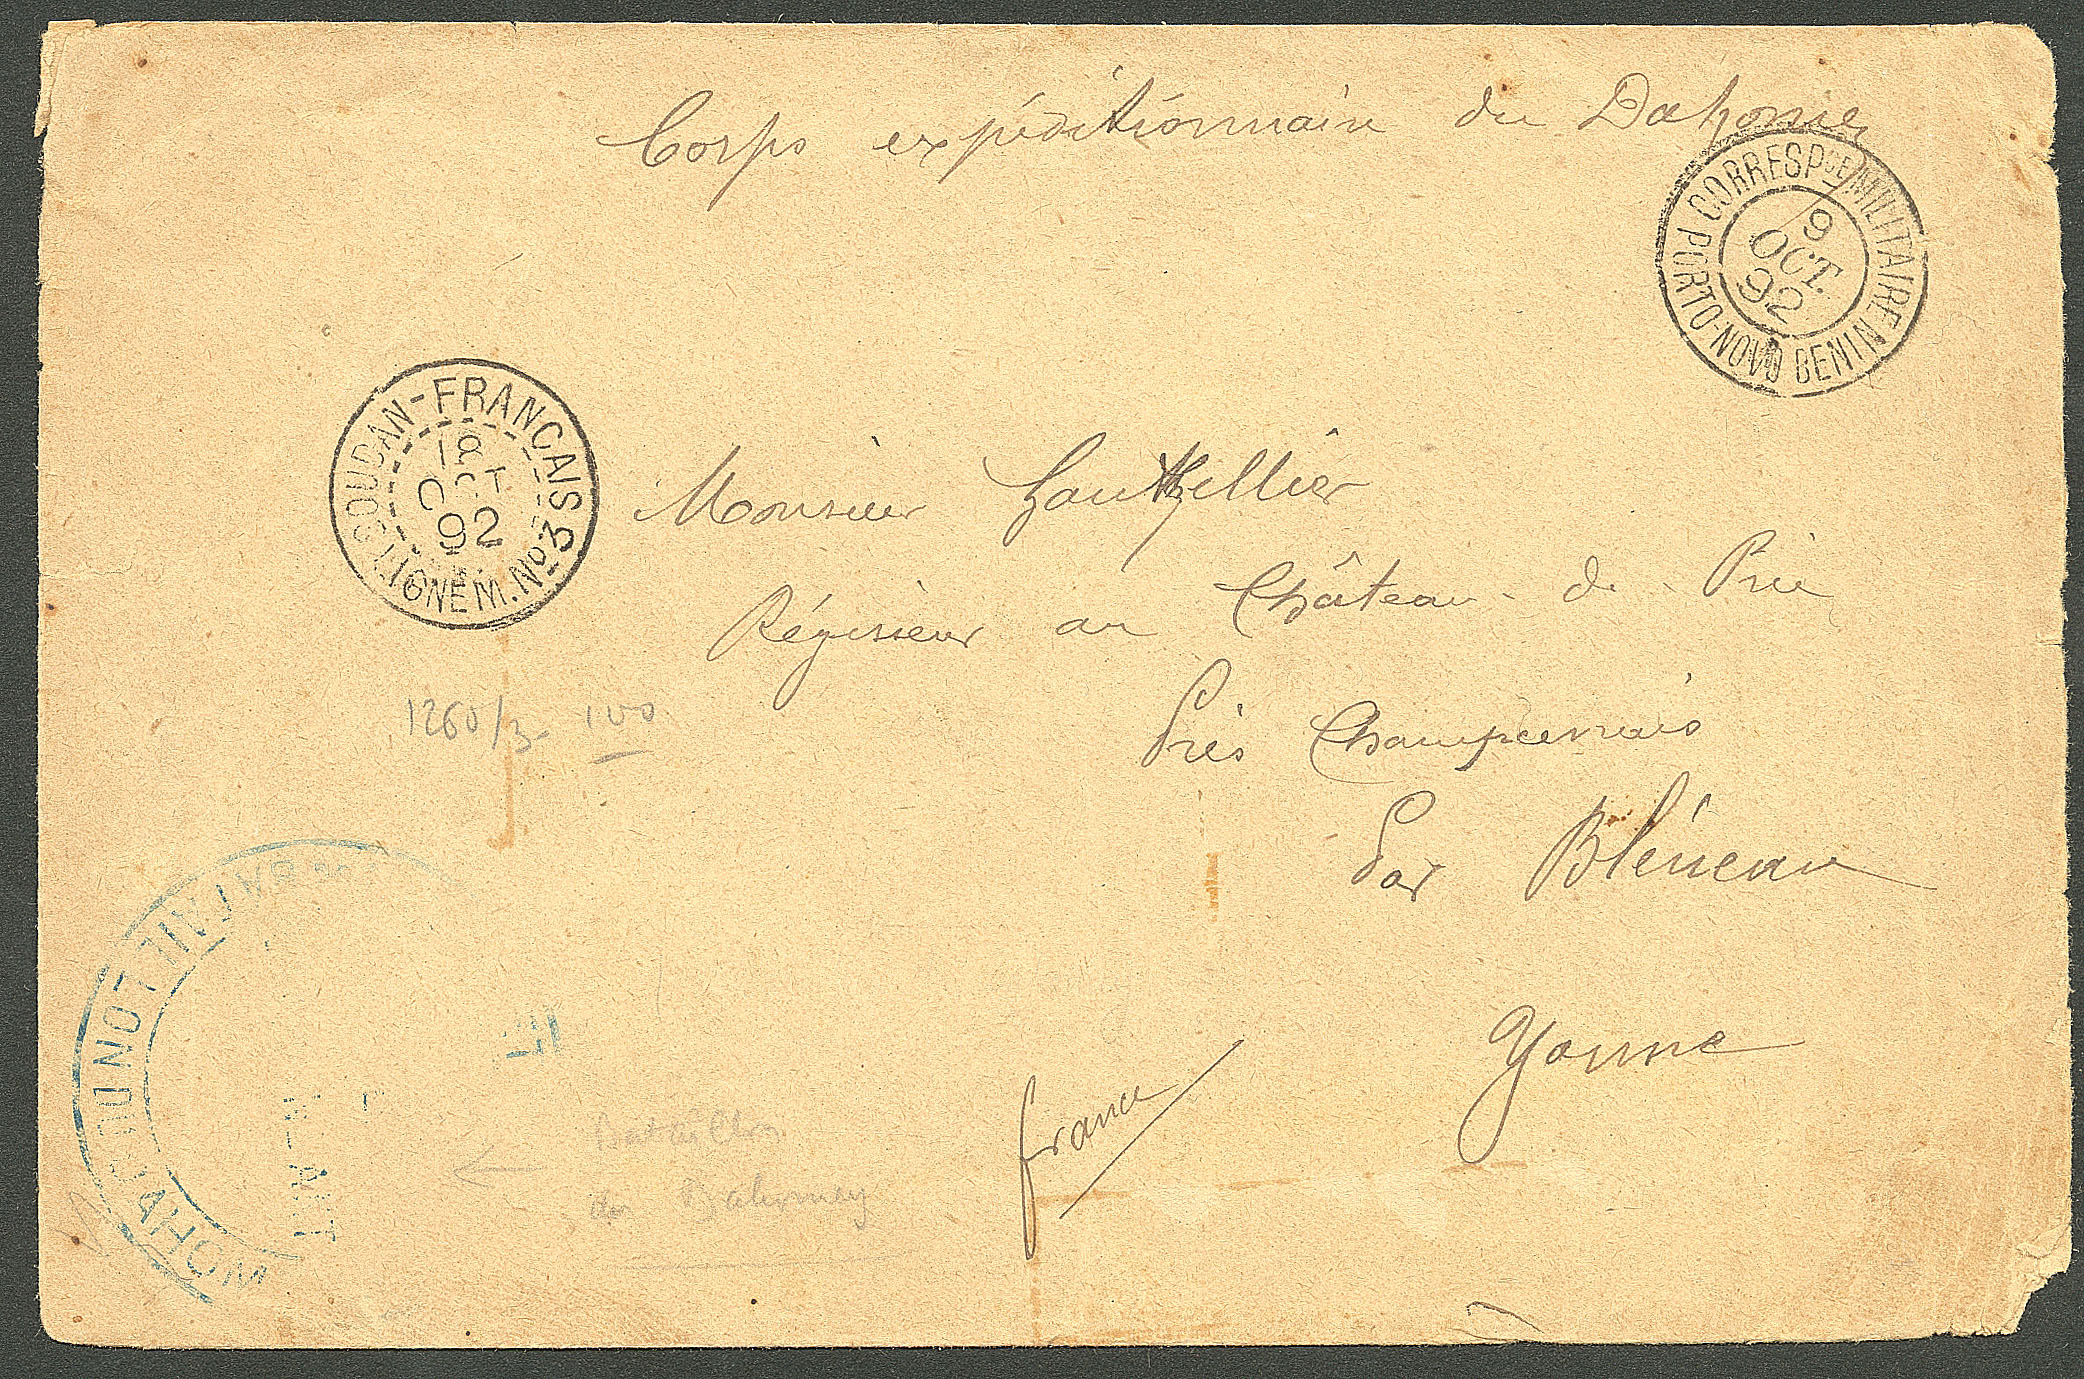 Corps expéditionnaire du Dahomey
CORRESP.CE MILITAIRE
PORTO-NOVO BENIN
9
OCT.
92
SOUDAN-FRANCAIS
OCT
92
LIGNE M. No 3
Monsieur
Régisseur au Château de Prie
Près Champcevrais
Par Bléneau
Yonne
France
1260/3- 100
BATAILLON DU DAHOM
Bataillon
du Dahomey